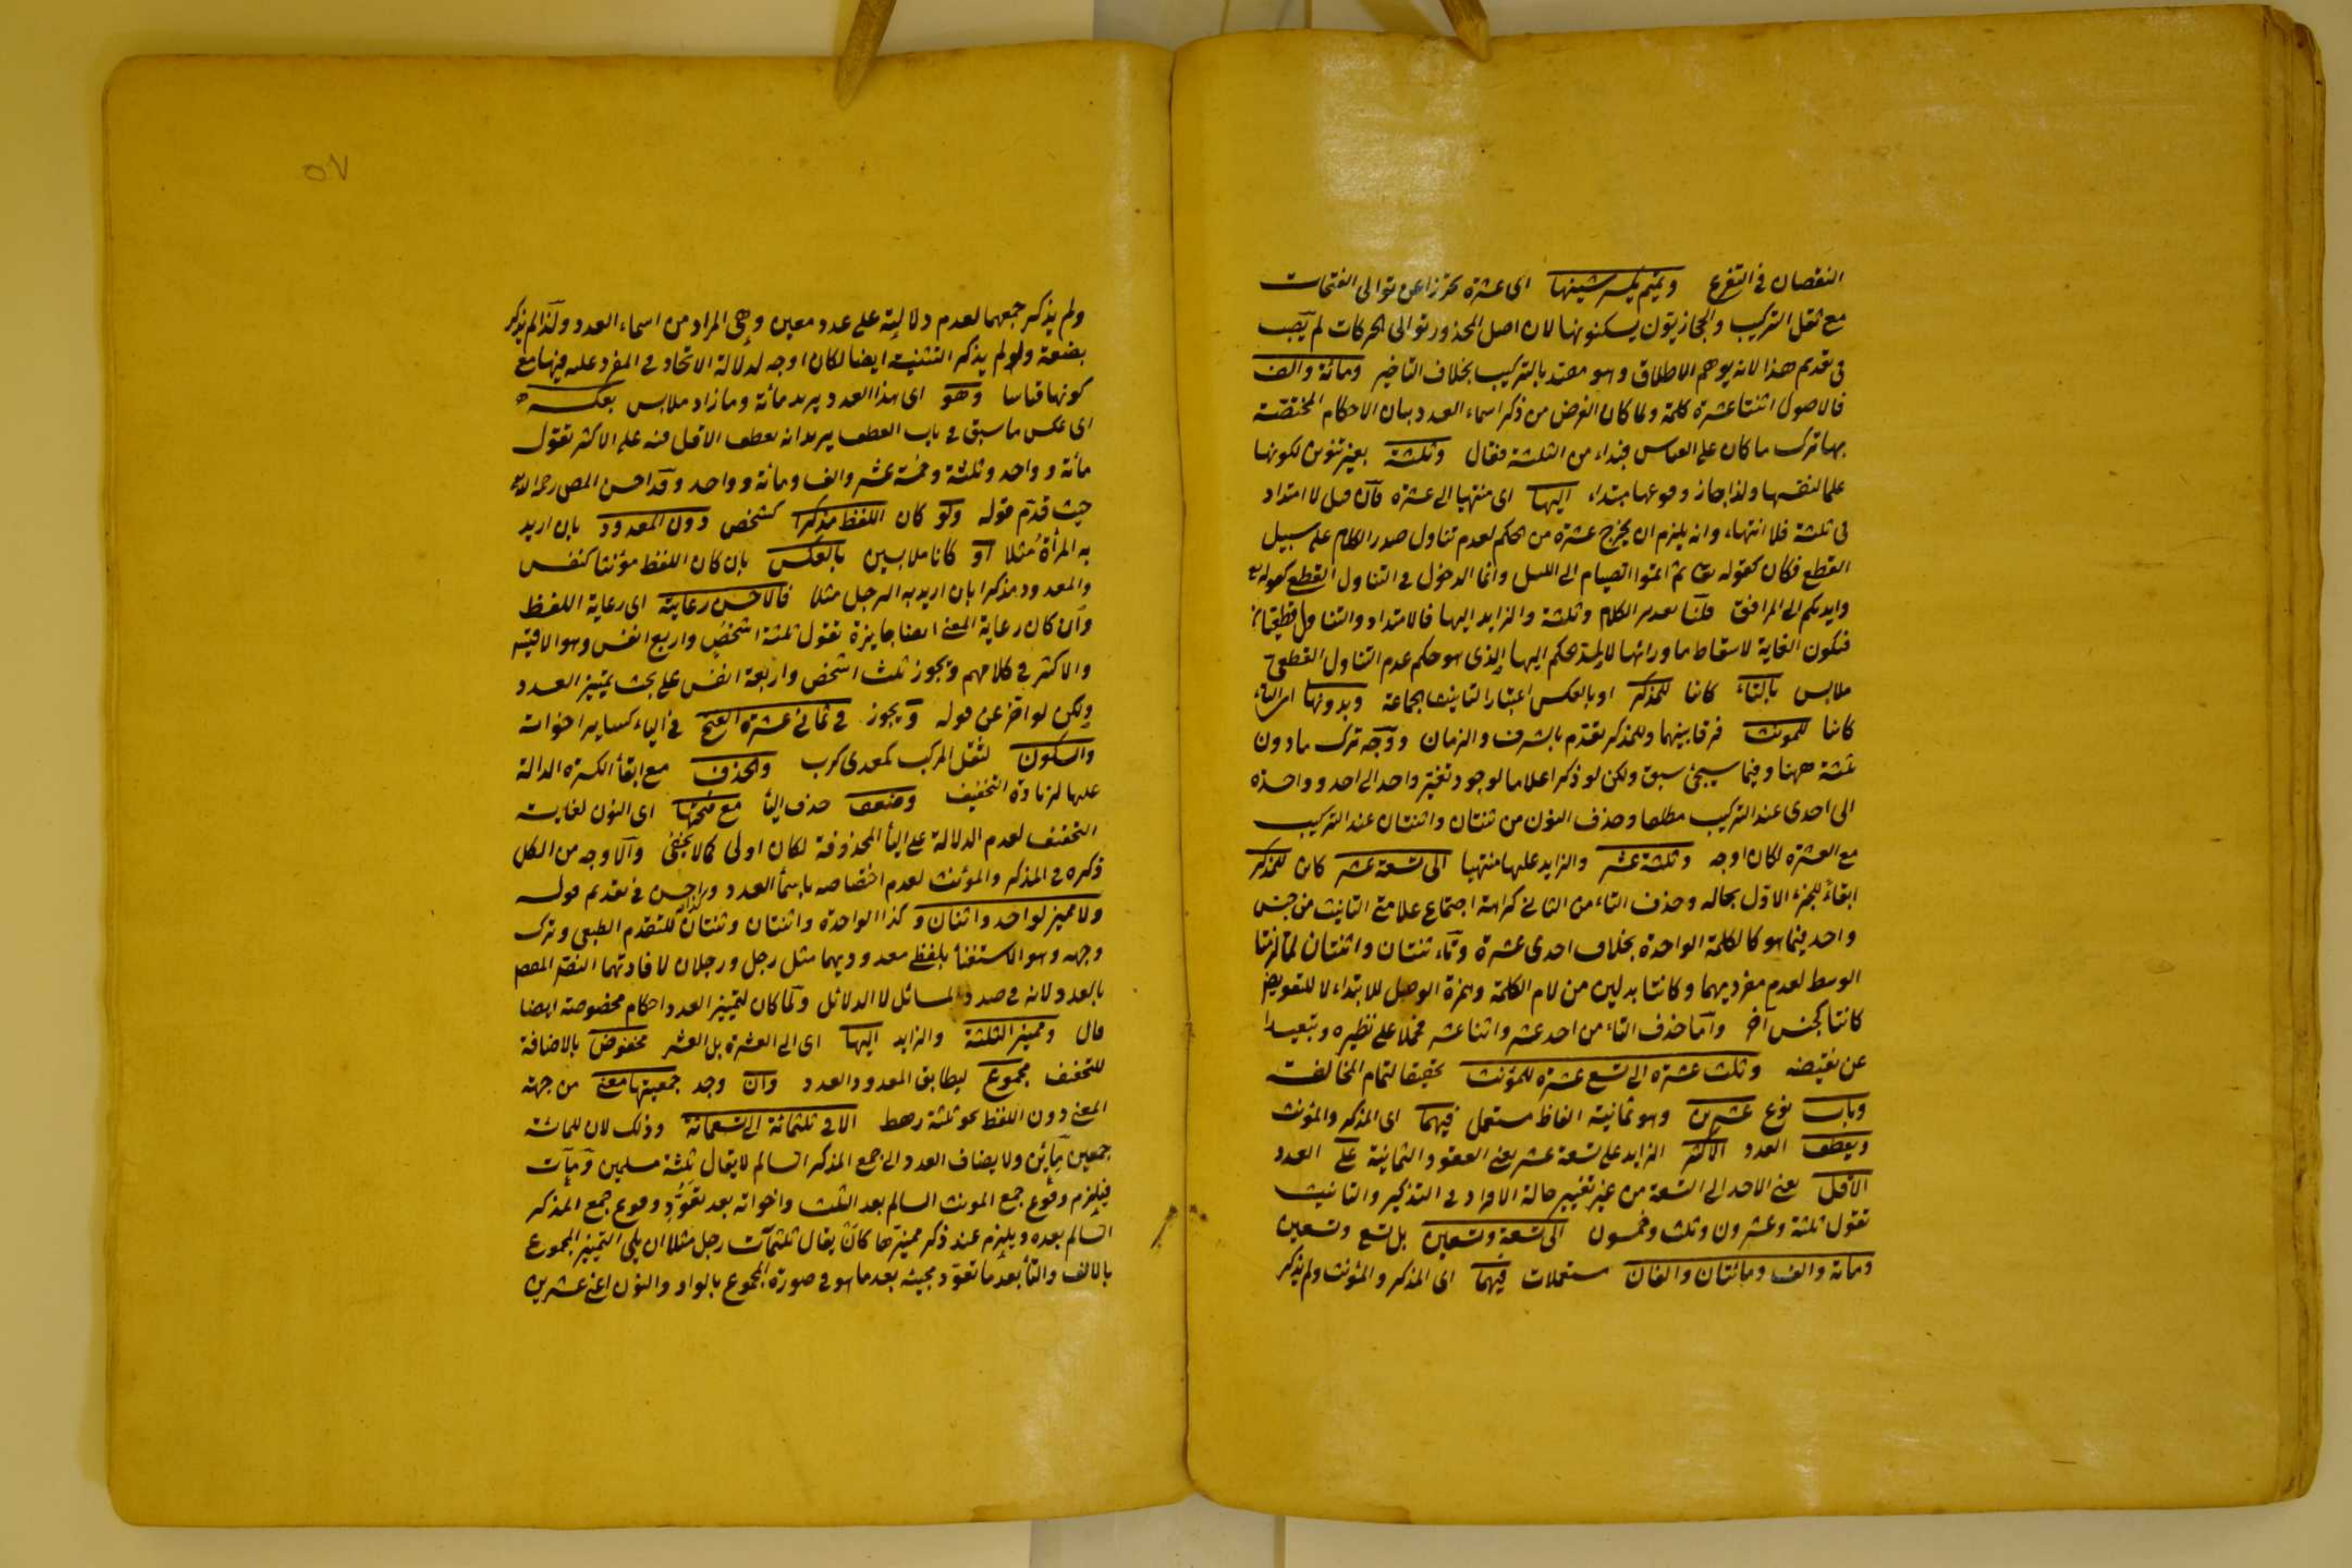 النقصان في التفرع وتميم يكسر شينها اى عشرة تحرزا عن توالى الفتحات
مع ثقل التركيب والحجازيون يسكنونها لان اصل المحذور توالى الحركات لم يصب
في تقديم هذا لانه يوهم الاطلاق وهو مقيد بالتركيب بخلاف التاخير ومائة والف
فالاصول اثنتا عشرة كلمة ولما كان الغرض من ذكر اسماء العدد بيان الاحكام المختصة
بها ترك ما كان على القياس فبداء من الثلثة فقال وثلثة بغير تنوين لكونها
علما لنفسها ولذا جاز وقوعها مبتداء اليها اى منتهيا الى عشرة فان قيل لا امتداد
في ثلثة فلا انتهاء وانه يلزم ان يخرج عشرة من الحكم لعدم تناول صدر الكلام على سبيل
القطع فكان كقوله تع ثم اتموا الصيام الى الليل وانما الدخول في التناول القطع كقوله تع
وايديكم الى المرافق قلنا تقدير الكلام وثلثة والزايد اليها فالامتداد والتناول قطعيان
فيكون الغاية لاسقاط ماورائها لا لمد الحكم اليها الذى هو حكم عدم التناول القطعى
ملابس بالتاء كائنا للمذكر او بالعكس اعتبارا لتانيث الجماعة وبدونها اى التاء
كائنا للمونث فرقا بينهما وللمذكر تقدم بالشرف والزمان ووجه ترك مادون
ثلثة ههنا وفيما سيجئ سبق ولكن لو ذكر اعلاما لوجود تغير واحد الى احد وواحدة
الى احدى عند التركيب مطلقا وحذف النون من ثنتان واثنتان عند التركيب
مع العشرة لكان اوجه وثلثة عشر والزايد عليها منتهيا الى تسعة عشر كائن للمذكر
ابقاء للجزء الاول بحاله وحذف التاء من الثاني كراهة اجتماع علامتى التانيث من جنس
واحد فيما هو كالكلمة الواحدة بخلاف احدى عشرة وتاء ثنتان واثنتان لما لزمتا
الوسط لعدم مفرديهما وكانتا بدلين من لام الكلمة وهمزة الوصل للابتداء لا للتعويض
كانتا كجنس آخر واما حذف التاء من احد عشر واثنا عشر فحملا على نظيره وتبعيدا
عن نقيضه وثلث عشرة الى تسع عشرة للمؤنث تحقيقا لتمام المخالفة
وباب نوع عشرين وهو ثمانية الفاظ مستعمل فيهما اى المذكر والمؤنث
ويعطف العدد الاكثر الزايد على تسعة عشر يعنى العقود الثمانية على العدد
الاقل يعنى الاحد الى التسعة من غير تغيير حالة الافراد في التذكير والتانيث
تقول ثلثة وعشرون وثلث وخمسون الى تسعة وتسعين بل تسع وتسعين
ومائة والف ومائتان والفان مستعملات فيهما اى المذكر والمؤنث ولم يذكر
٥٧
ولم يذكر جمعهما لعدم دلالته على عدد معين وهى المراد من اسماء العدد ولذا لم يذكر
بضعة ولو لم يذكر التثنية ايضا لكان اوجه لدلالة الاتحاد في المفرد عليه فيها مع
كونها قياسا وهو اى هذا العدد يريد مائة وما زاد ملابس بعكسه
اى عكس ما سبق في باب العطف يريد انه يعطف الاقل فيه على الاكثر تقول
مائة وواحد وثلثة وخمسة عشر والف ومائة وواحد وقد احسن المص رحمه الله
حيث قدم قوله ولو كان اللفظ مذكرا كشخص دون المعدود بان اريد
به المرأة مثلا او كانا ملابسين بالعكس بان كان اللفظ مؤنثا كنفس
والمعدود مذكرا بان اريد به الرجل مثلا فالاحسن رعايته اى رعاية اللفظ
وان كان رعاية المعنى ايضا جايزة تقول ثلثة اشخص واربع انفس وهو الاقيس
والاكثر في كلامهم وتجوز ثلث اشخص واربعة انفس على بحث تمييز العدد
ولكن لو اخر عن قوله ويجوز في ثماني عشرة الفتح في الياء كساير اخواته
والسكون لثقل المركب كمعدى كرب والحذف مع ابقأ الكسرة الدالة
عليها لزيادة التخفيف وضعف حذف اليأ مع فتحها اى النون لغاية
التخفيف لعدم الدلالة على اليأ المحذوفة لكان اولى كما لا يخفى والاوجه من الكل
ذكره في المذكر والمؤنث لعدم اختصاصه باسمأ العدد وبر احسن في تقديم قوله
ولا مميز لواحد واثنان وكذا الواحدة واثنتان وثنتان للتقدم الطبعى وترك
وجهه وهو الاستغنأ بلفظ معدوديهما مثل رجل ورجلان لافادتهما النص المقصود
بالعدد لانه في صدد المسائل لا الدلائل ولما كان لتمييز العدد احكام مخصوصة ايضا
قال ومميز الثلثة والزايد اليها اى الى العشرة بل العشر مخفوض بالاضافة
للتخفيف مجموع ليطابق المعدود العدد وان وجد جمعيتها معنى من جهة
المعنى دون اللفظ نحو ثلثة رهط الا في ثلثمائة الى تسعمائة وذلك لان للمائة
جمعين مآئين ولا يضاف العدد الى جمع المذكر السالم لا يقال ثلثة مسلمين ومآت
فيلزم وقوع جمع المونث السالم بعد الثلث واخواته بعد تعود وقوع جمع المذكر
السالم بعده ويلزم عند ذكر مميزها كان يقال ثلثمآت رجل مثلا ان يلى التمييز المجموع
بالالف والتأ بعد ما تعود مجيئه بعد ما هو في صورة المجموع بالواو والنون اعنى عشرين